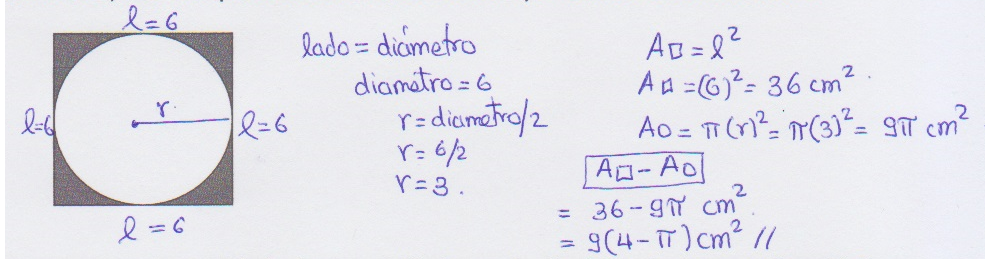 l = 6
l=6
r.
l = 6
l = 6
lado = diámetro
diamétro = 6
r = diametro/2
r = 6/2
r = 3.
A□ = l²
A□ = (6)² = 36 cm².
A○ = π(r)² = π(3)² = 9π cm²
A□ - A○
= 36 - 9π cm²
= 9(4 - π) cm² //